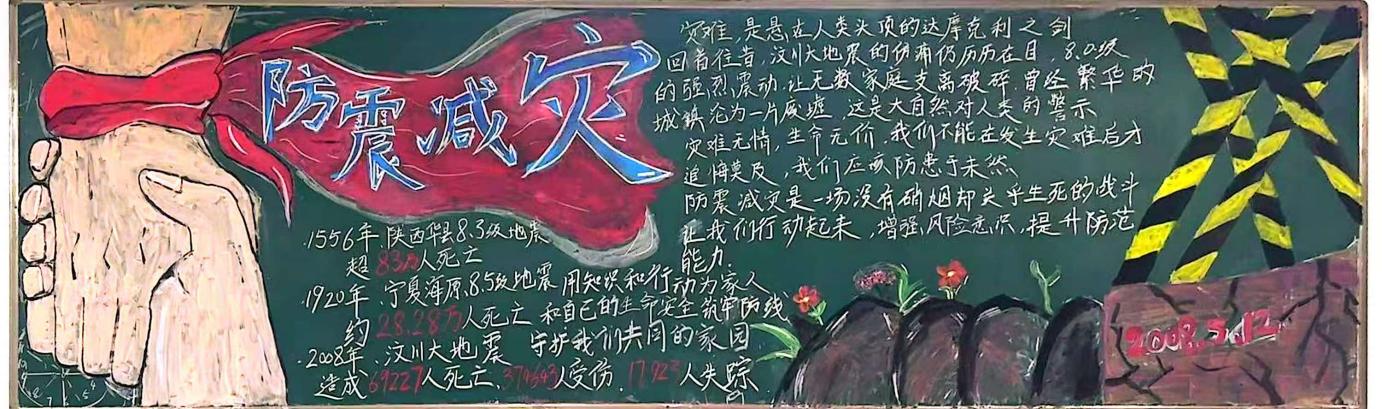 防震减灾
灾难，是悬在人类头顶的达摩克利之剑
回首往昔，汶川大地震的伤痛仍历历在目，8.0级
的强烈震动，让无数家庭支离破碎，曾经繁华的
城镇沦为一片废墟，这是大自然对人类的警示
灾难无情，生命无价，我们不能在发生灾难后才
追悔莫及，我们应该防患于未然
防震减灾是一场没有硝烟却关乎生死的战斗
让我们行动起来，增强风险意识，提升防范
能力.
用知识和行动为家人
和自己的生命安全筑牢防线
守护我们共同的家园
·1556年.陕西华县8.3级地震
超83万人死亡
·1920年.宁夏海原8.5级地震
约28.28万人死亡
·2008年.汶川大地震
造成69227人死亡.374643人受伤.17923人失踪
2008.5.12